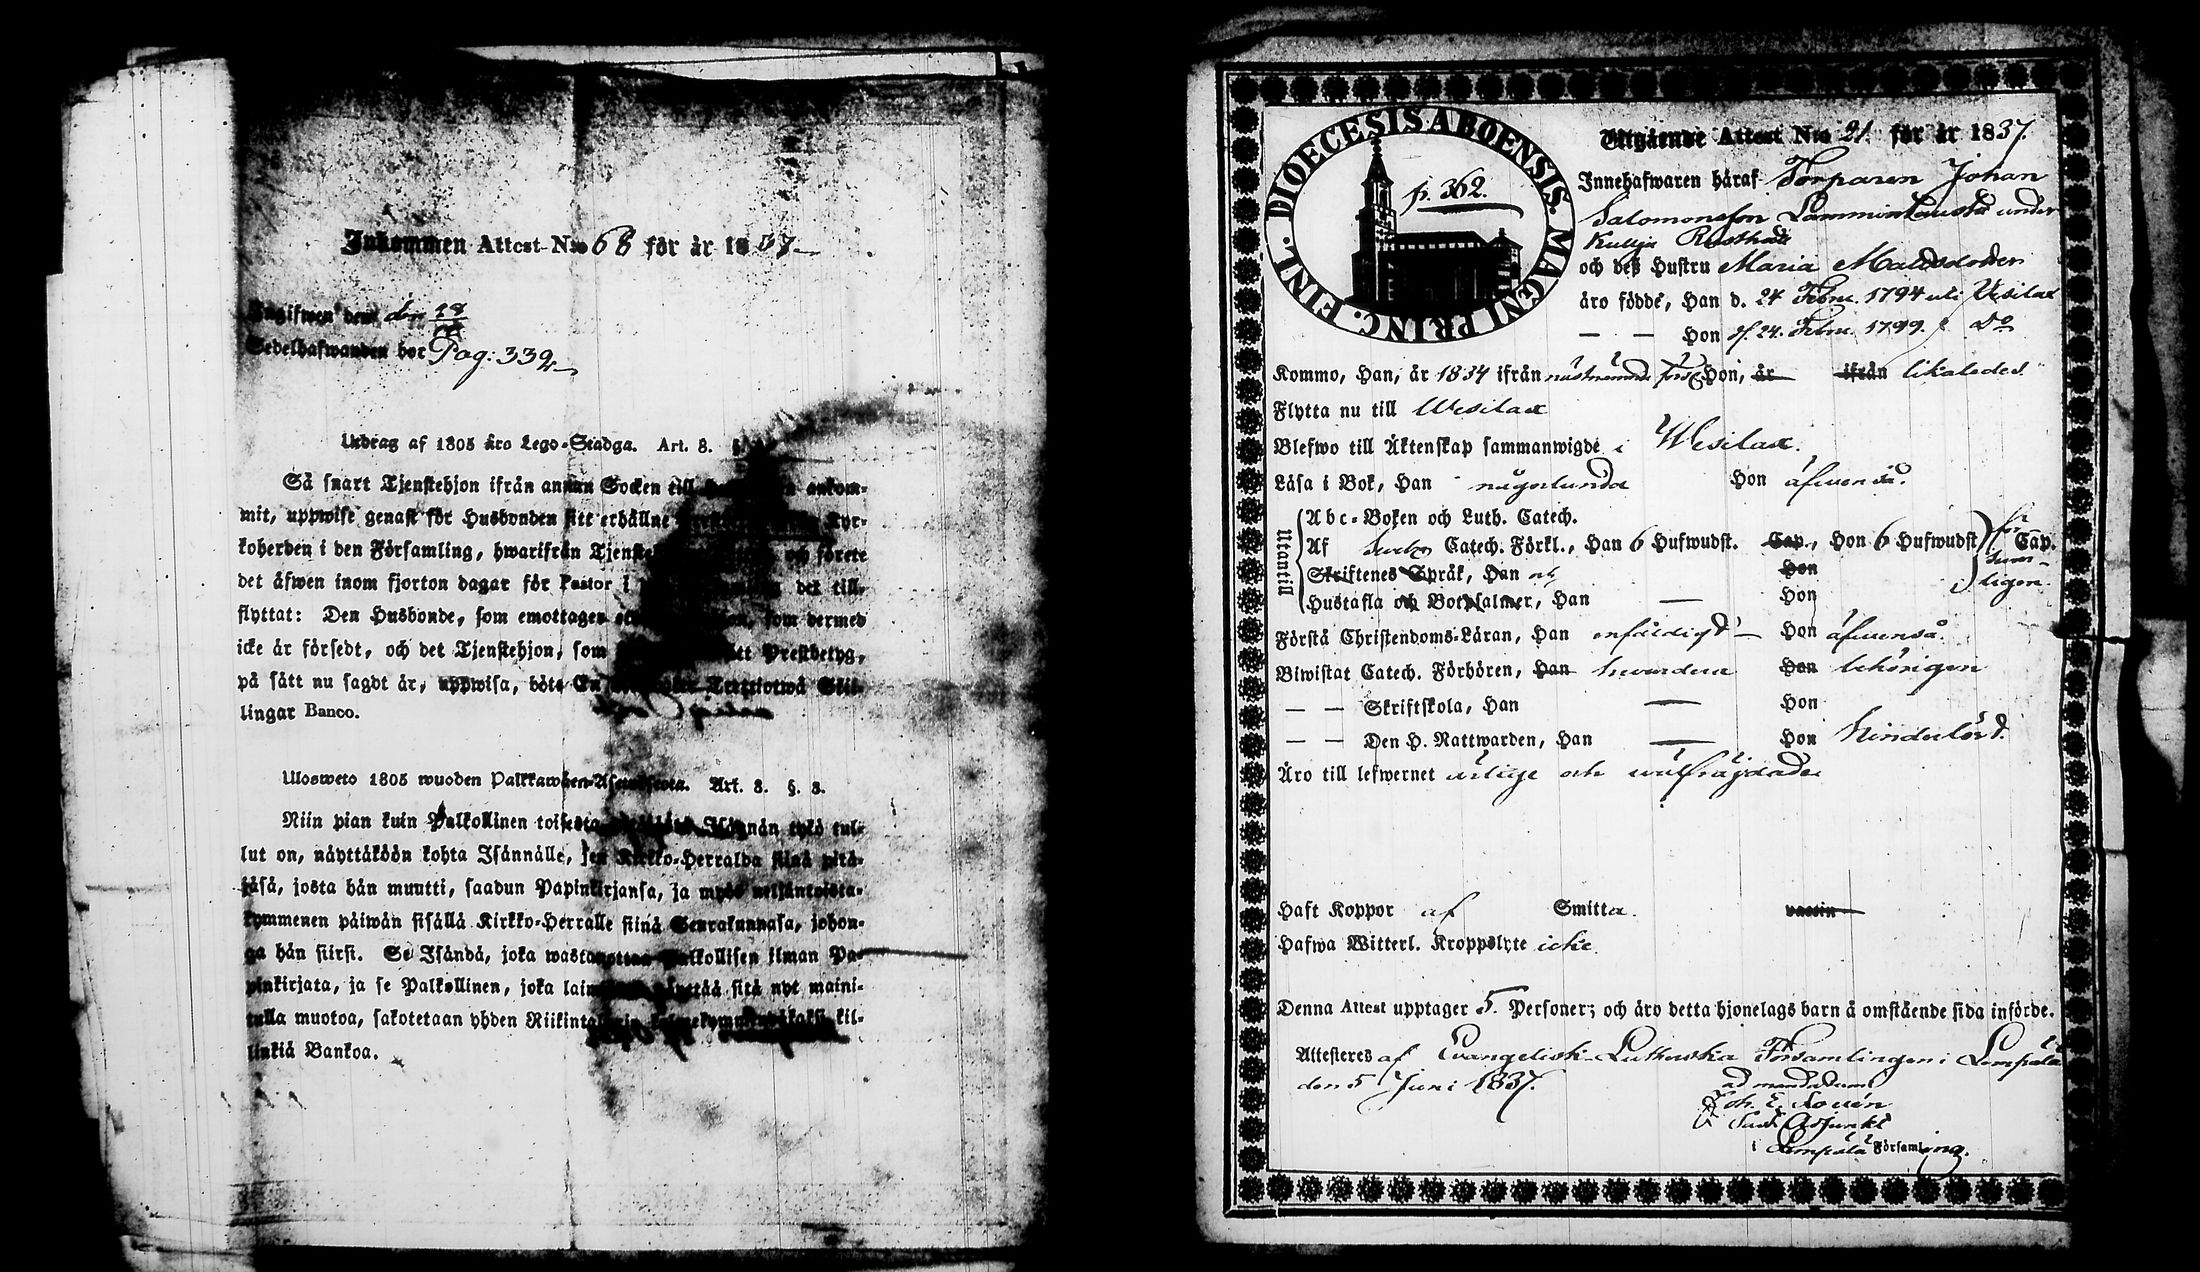 Inkommen Attest N:o 68 för år 1837
Ingifwen den
Sedelhafwanden bor Pag: 339
Utdrag af 1805 års Lego-Stadga. Art. 8. §.
Så snart Tjenstehjon ifrån annan Socken till ankom-
mit, uppwise genast för Husbonden sitt erhållne Kyr-
koherden i den Församling, hwarifrån och förete
det äfwen inom fjorton dagar för Pastor i det till-
flyttat: Den Husbonde, som emottager som dermed
icke är försedt, och det Tjenstehjon, som Prestbetyg,
på sätt nu sagdt är, uppwisa, böte En Trettiotwå Skil-
lingar Banco.
Ulosweto 1805 wuoden Palkkawäen-Asetuksesta. Art. 8. §. 8.
Niin pian kuin Palkollinen toisesta Isännän tykö tul-
lut on, näyttäköön kohta Isännälle, sen Kirkko-Herralda siinä pitä-
jäsä, josta hän muutti, saadun Papinkirjansa, ja myös neljäntoista-
kymmenen päiwän sisällä Kirkko-Herralle siinä Seurakunnasa, johon-
ga hän siirsi. Se Isändä, joka wastaanottaa Palkollisen ilman Pa-
pinkirjata, ja se Palkollinen, joka näyttää sitä nyt maini-
tulla muotoa, sakotetaan yhden kil-
linkiä Bankoa.
DIOECESIS ABOENSIS. MAGNI PRINC. FINL.
p. 362.
Utgående Attest N:o 21. för år 1837.
Innehafwaren häraf Torparen Johan
Salomonsson under
Kulju Rusthåll
och deß Hustru Maria Mattsdotter
äro födde, Han d. 24 Febru. 1794 uti Vesilax
— — Hon d. 24. Febru. 1799. Do
Kommo, Han, år 1834 ifrån Hon, år ifrån likaledes.
Flytta nu till Wesilax
Blefwo till Äktenskap sammanwigde i Wesilax.
Läsa i Bok, Han någorlunda Hon äfwenså.
Utantill
Abc-Boken och Luth. Catech.
Af Catech. Förkl., Han 6 Hufwudst. Cap., Hon 6 Hufwudst. Cap.
Skriftenes Språk, Han Hon
Hustafla och Botpsalmer, Han — Hon
Förstå Christendoms-Läran, Han enfäldigt Hon äfwenså.
Biwistat Catech. Förhören, Han Hon behörigen
— — Skriftskola, Han — Hon
— — Den H. Nattwarden, Han — Hon hinderlöst.
Äro till lefwernet ärlige och wälfrägdade
Haft Koppor af Smitta. vaccin
Hafwa Witterl. Kroppslyte icke.
Denna Attest upptager 5. Personer; och äro detta hjonelags barn å omstående sida införde.
Attesteras af Evangelisk-Lutherska Församlingen i Lempälä
den 5 Juni 1837.
ad mandatum
Joh. E.
Adjunkt
i Lempälä Församling.